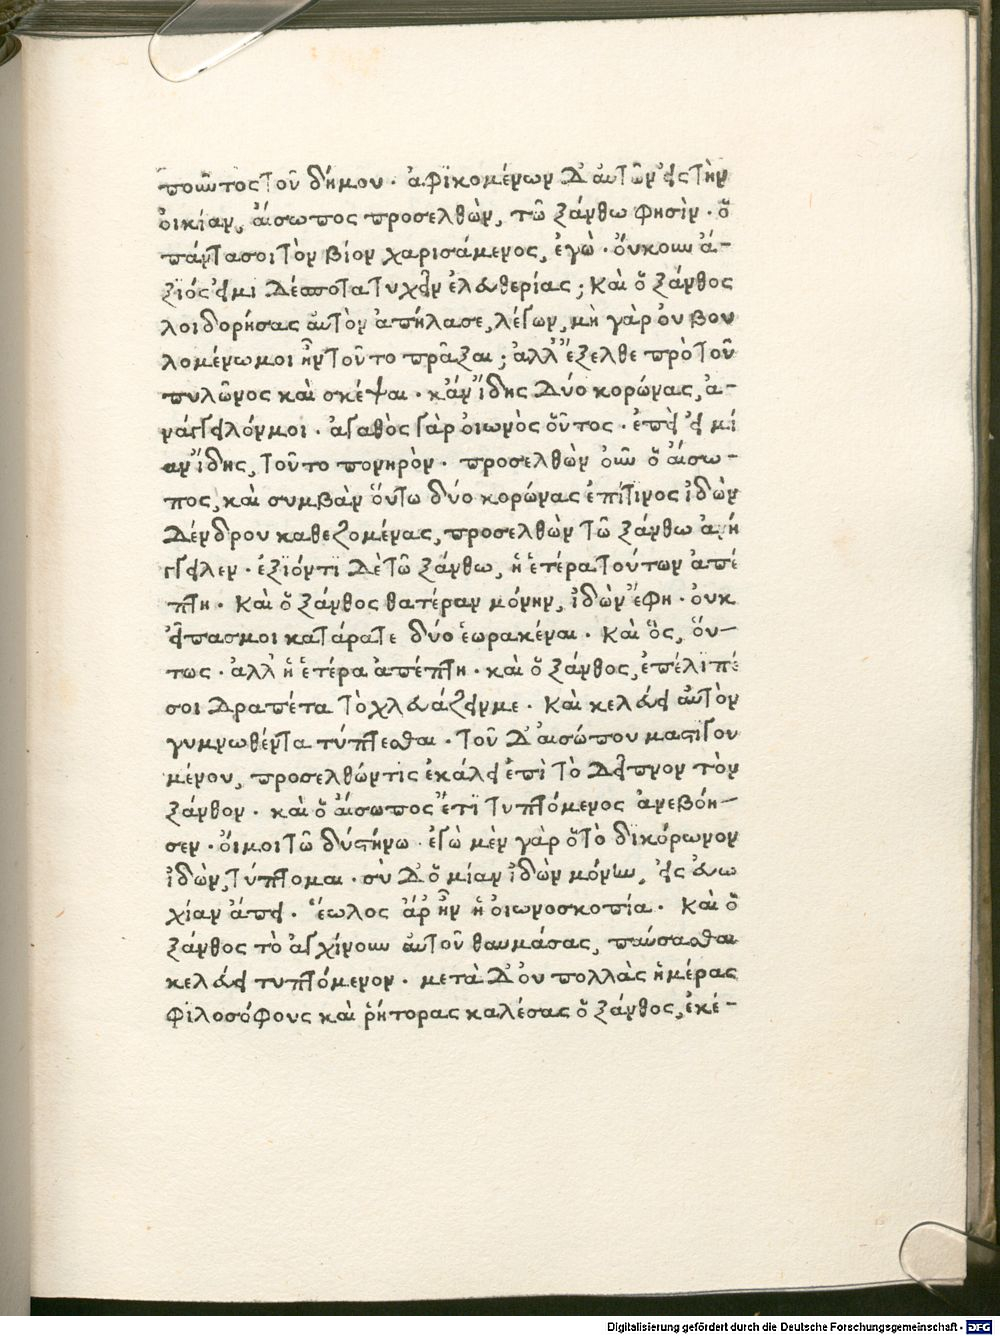 ποιῶντος τοῦ δήμου · ἀφϊκομένων δ' ἀυτῶν ἐις τὴν
ὀικίαν, ἄισωπος προσελθὼν, τῶ ξάνθω φησὶν · ὅ
πάντα σοι τὸν βίον χαρισάμενος, ἐγὼ · ὄυκουν ἄ-
ξϊός ἐιμι δέσποτα τυχεῖν ἐλευθερίας ; Καὶ ὅ ξάνθος
λοιδορήσας ἀυτὸν ἀπήλασε, λέγων, μὴ γὰρ ὀυ βου
λομένω μοι ἦν τοῦτο πρᾶξαι ; ἀλλ' ἔξελθε πρὸ τοῦ
πυλῶνος καὶ σκέψαι · κἄν ἴδης δύο κορώνας, ἀ-
νάγγειλόν μοι · ἀγαθὸς γὰρ ὀιωνὸς ὅυτος · ἐπεὶ ἐι μί
αν ἴδης, τοῦτο πονηρὸν · προσελθὼν ὀῦν ὅ ἄισω-
πος, καὶ συμβὰν ὅυτω δύο κορώνας ἐπί τινος ἰδὼν
δένδρον καθεζομένας, προσελθὼν τῶ ξάνθω ἀνή
γγειλεν · ἐξϊόντι δὲ τῶ ξάνθω, ἡ ἑτέρα τούτων ἀπέ
πτη · Καὶ ὅ ξάνθος θατέραν μόνην, ἰδὼν ἔφη · ὀυκ
ἐῖπας μοι κατάρατε δύο ἑωρακέναι · Καὶ ὃς, ὅυ-
τως · ἀλλ' ἡ ἑτέρα ἀπέπτη · καὶ ὅ ξάνθος, ἐπέλϊπέ
σοι δραπέτα τὸ χλευάζειν με · Καὶ κελεύει ἀυτὸν
γυμνωθέντα τύπτεσθαι · τοῦ δ' ἀισώπου μαστιγου
μένου, προσελθών τις ἐκάλει ἐπὶ τὸ δεῖπνον τὸν
ξάνθον · καὶ ὅ ἄισωπος ἔτϊ τυπτόμενος ἀνεβόη-
σεν · ὄιμοι τῶ δύστήνω · ἐγὼ μὲν γὰρ ὅ τὸ δϊκόρωνον
ἰδὼν, τύπτομαι · σὺ δ' ὅ μίαν ἰδὼν μόνην, ἐις ἐυω
χίαν ἄπει · ἕωλος ἄρ' ἦν ἡ ὀιωνοσκοπία · Καὶ ὅ
ξάνθος τὸ ἀγχίνουν ἀυτοῦ θαυμάσας, παύσασθαι
κελεύει τυπτόμενον · μετὰ δ' ὀυ πολλὰς ἡμέρας
φϊλοσόφους καὶ ῥήτορας καλέσας ὅ ξάνθος, ἐκέ-
Digitalisierung gefördert durch die Deutsche Forschungsgemeinschaft - DFG